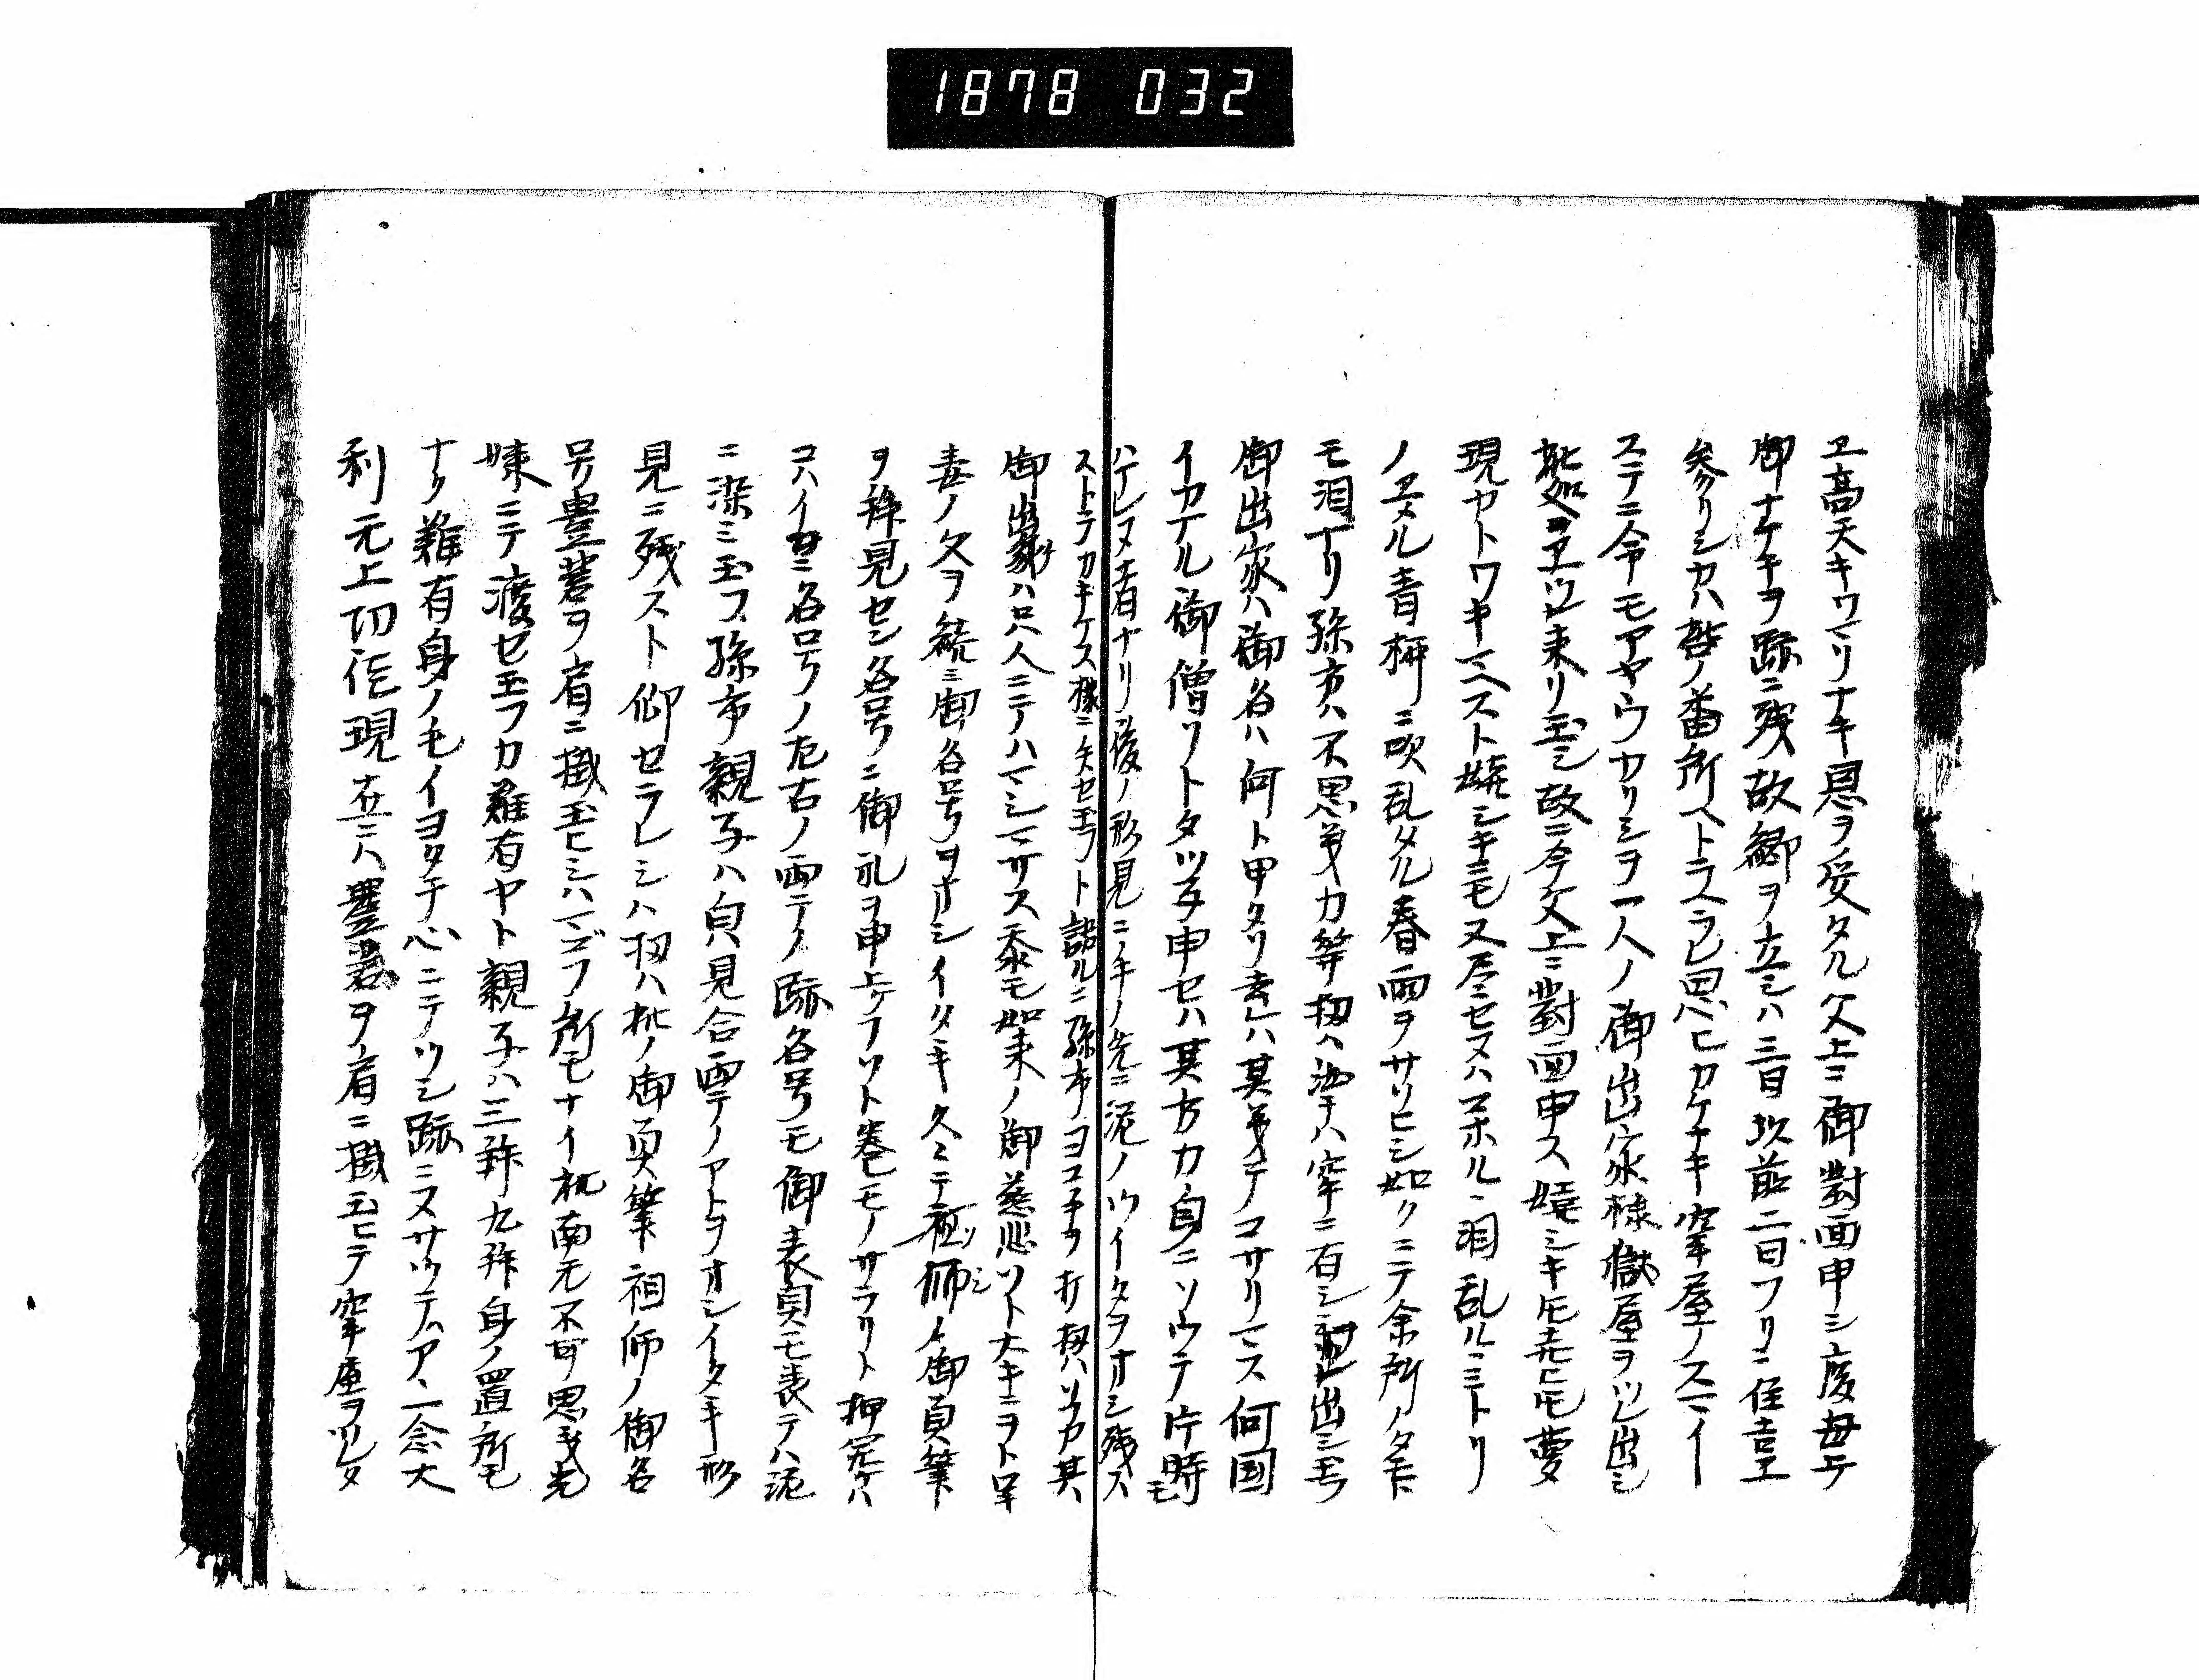 1878 032
ヱ高天キワマリナキ恩ヲ受タル父上ニ御對面申シ度母テ
御ナケキヲ跡ニ残故郷ヲ立シハ三日以前二日フリニ住吉ヱ
参リシカハ磬ノ番所ヘトラスラレ思ヒカケナキ牢屋ノスマイ
ステニ令モアヤウカリシヲ一人ノ御出家様獄屋ヲツレ出シ
此処ヲヱツレ来リ玉シ故ニ今父上ニ對面申ス嬉シキ托悲托夢
現カトワキマヘスト嬉シキニモ又尽セヌハコホルヽ泪乱ルミトリ
ノヱメル青柳ニ吹乱タル春雨ヲサソヒシ如クニテ余所ノタモト
モ泪ナリ孫市ハ不思議カ等扨ハ汝ナハ牢ニ有シヲ連出シ玉フ
御出家ハ御名ハ何ト申タリ幸ハ其儀テノコサリマス何国
イカナル御僧ソトタツネ申セハ其方カ自ニソウテ片時モ
ハナレヌ者ナリ後ノ形見ニノ手ノ先ニ泥ノツイタヲオシ残ス
ストテカキケス様ニ失セ玉フト語ルニ孫市ノヨコ手ヲ打扨ハソカ其
御出家ハ只人ニテハマシマサス忝モ如来ノ御慈悲ソト大キニヲトロキ
妻ノ父ヲ続ミ御名号ヲオシイタヽキ久ミテ祖師ノ御真筆
ヲ拝見セン名号ニ御礼ヲ申上ケフソト巻モノサラリト押完ケハ
コハイカニ名号ノ左右ノ両手ノ跡名号モ御表具モ表テハ泥
ニ染ミ玉フ孫市親子ハ㒵見合両手ノアトヲオシイタヽキ形
見ニ残スト仰セラレシハ扨ハ此ノ御真筆祖師ノ御名
号豊菩ヲ肩ニ掛玉ヒシハマゴフ所モナイ此南无不可思議光
如来ニテ渡セ玉フカ難有ヤト親子ハ三拝九拝身ノ置所モ
ナク難有身ノモイヨタチ心ニテツシ跡ニヌサツテムアヽ一念大
利无上功徳現在ニハ豊菩ヲ肩ニ掛玉ヒテ牢屋ヲツレタ